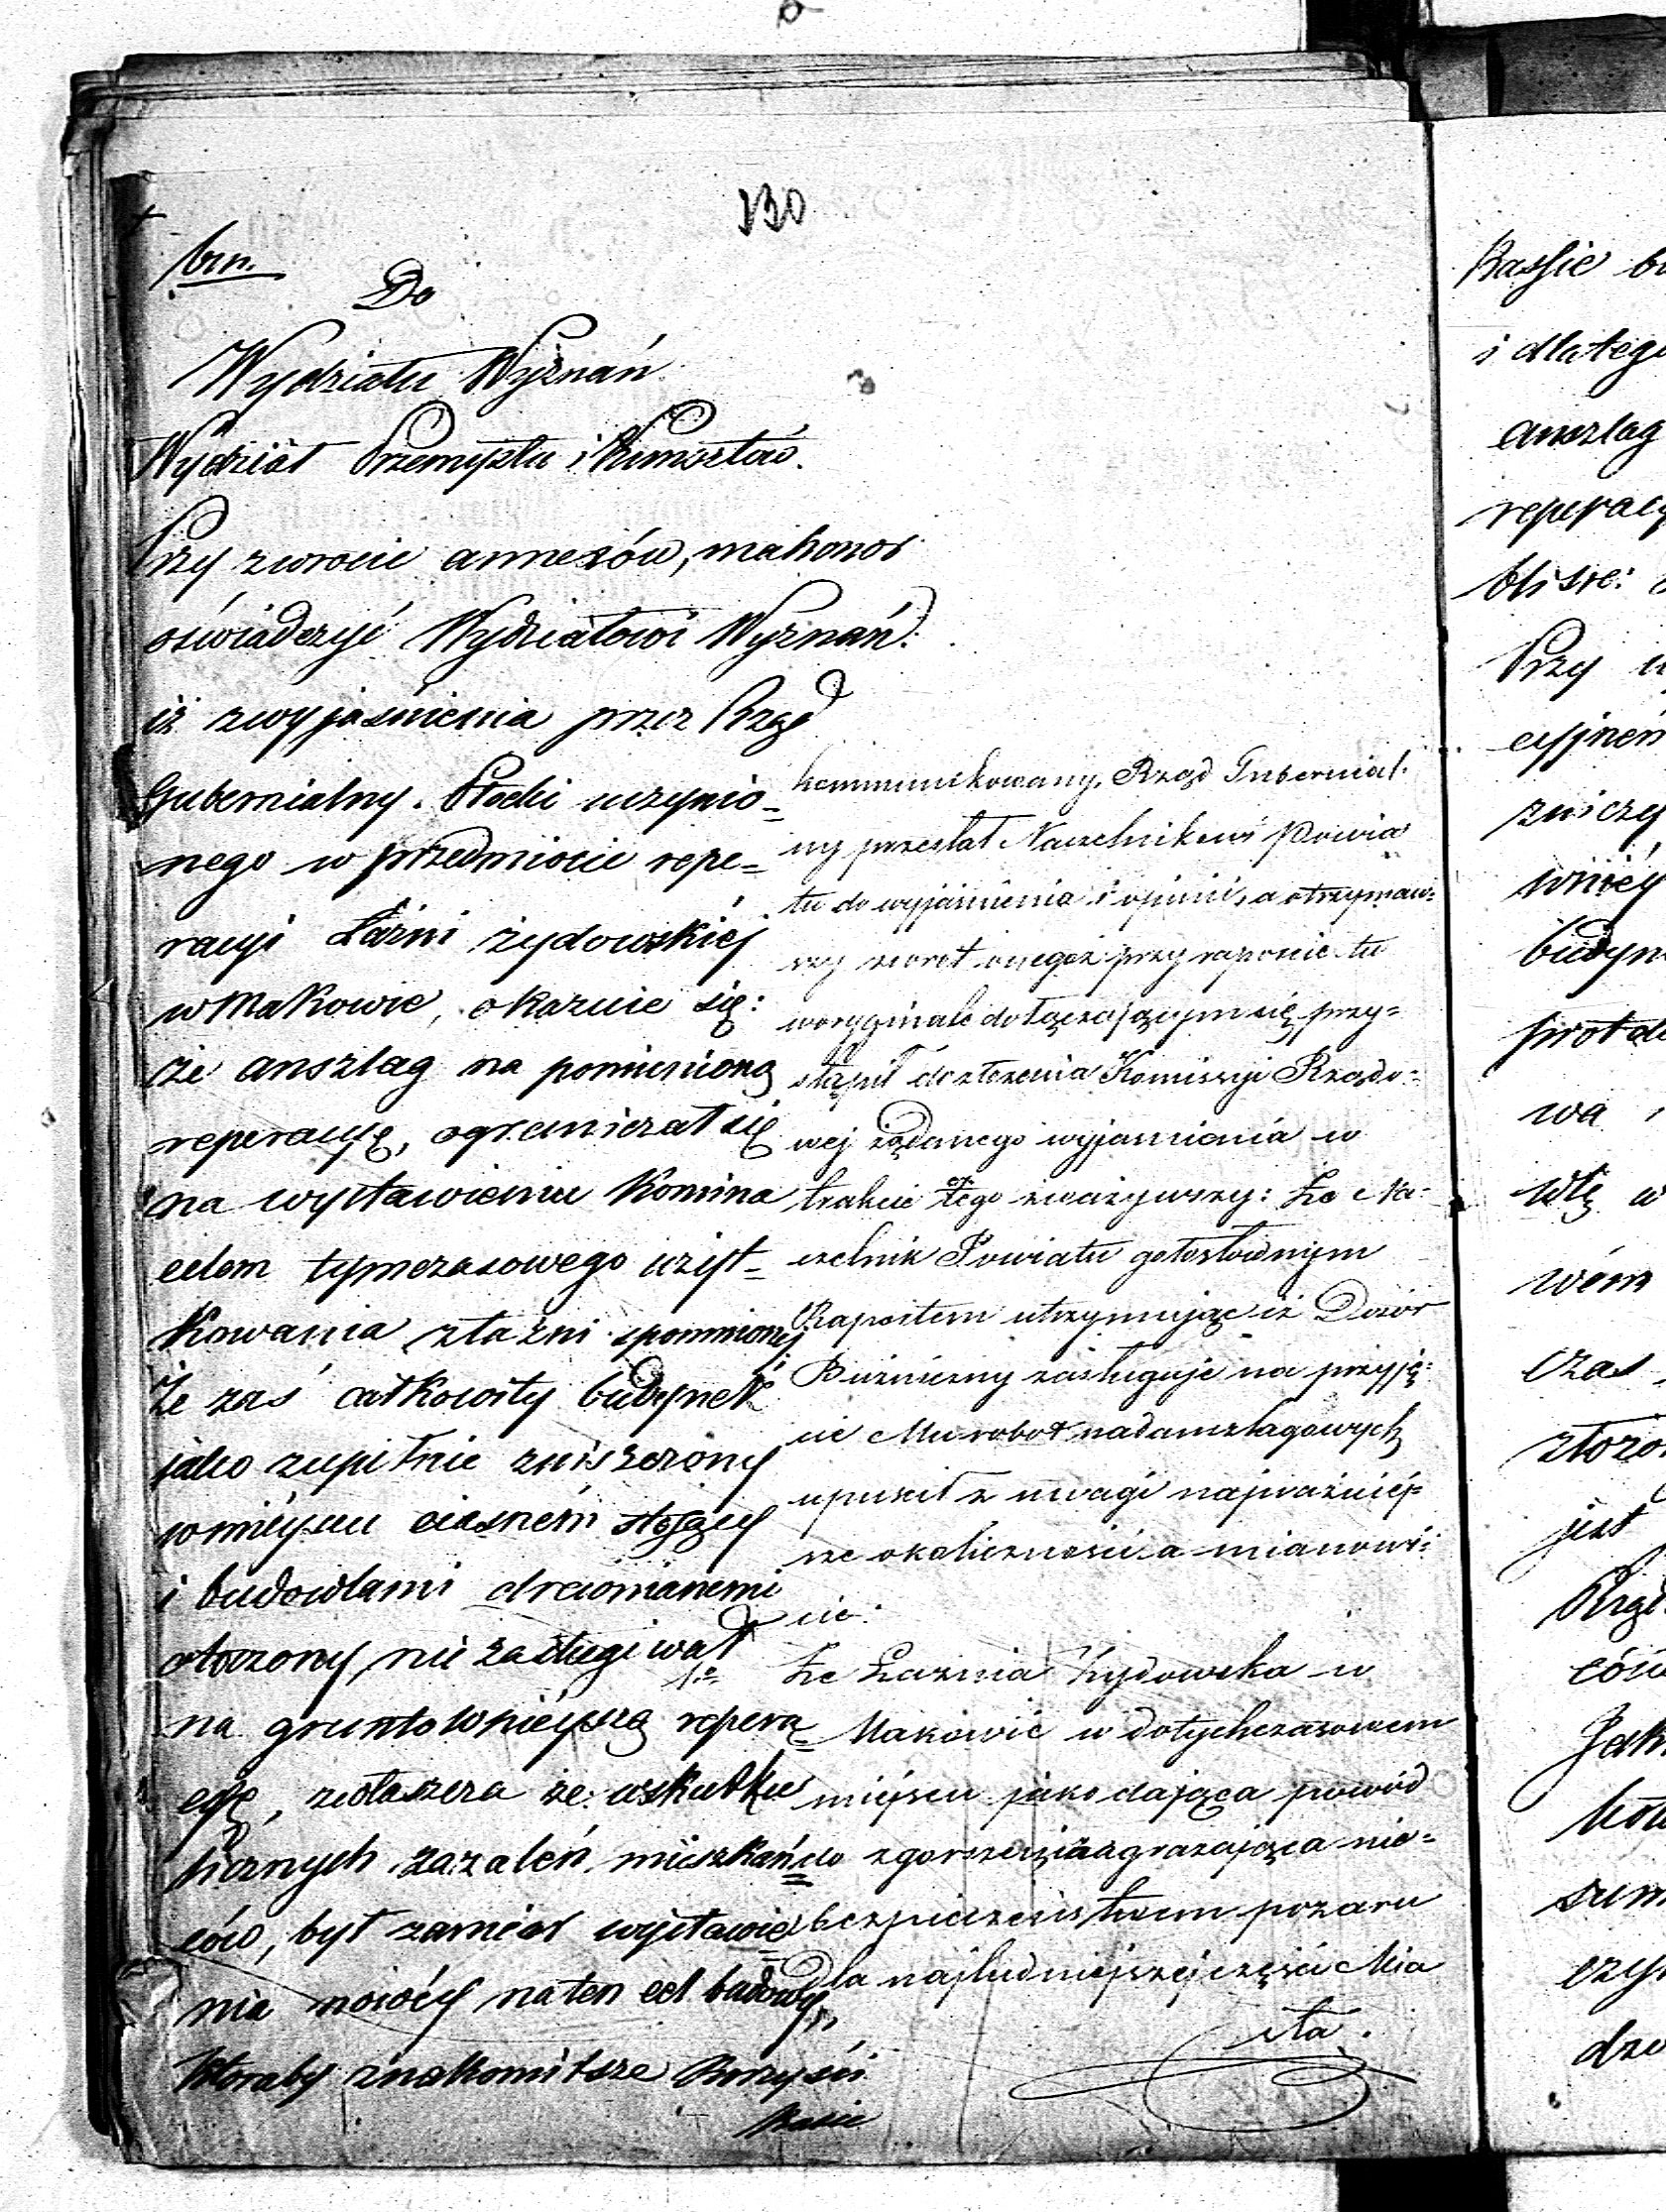 130
brn.
Do
Wydziału Wyznań
Wydział Przemysłu i Kunsztów.
Przy zwrocie annexów, ma honor
oświadczyć Wydziałowi Wyznań:
iż z wyjaśnienia przez Rząd
Gubernialny Płocki uczynio=
nego w przedmiocie repe=
racyi Łaźni żydowskiéj
w Makowie, okazuie się:
że anszlag na pomienioną
reperacyę, ograniczał się
na wystawieniu Komina
celem tymczasowego użyt=
kowania z łaźni spomnionej
Że zaś całkowity budynek
jako zupełnie zniszczony
w miéyscu ciasném stojący
i budowlami drewnianemi
otoczony, nie zasługiwał
na gruntownieyszą repera=
cyę, zwłaszcza że wskutku
licznych zażaleń mieszkań=
ców, był zamiar wystawie=
nia nowéy na ten cel budowy,
któraby znakomitsze Korzyści
Kassie
kommunikowany, Rząd Gubernial.
ny przesłał Naczelnikowi Powia
tu do wyjaśnienia i opinii, a otrzymaw=
szy zwrot onegoż przy raporcie tu
w oryginale dołączającym się przy=
stąpił do złożenia Komissyi Rządo=
wej żądanego wyjaśnienia w
trakcie tego zważywszy: Że Na=
czelnik Powiatu gołosłownym
Raportem utrzymując iż Dozór
Bużniczny zasługuje na przyję=
cie Mu robót nadanszlagowych
upuścił z uwagi najważniéj=
sze okoliczności a mianowi=
cie:
1o Że Łaźnia Żydowska w
Makowie w dotychczasowem
miéjscu jako dająca powód
do zgorszenia zagrażająca nie=
bezpieczeństwem pożaru
dla najludniejszej części Mia
sta.
Kassie
i dlatego
anszlag
reperacy
Przy
wa
czas
jest